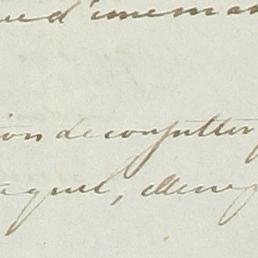 ued'une man
ion de consulter
aquel, elle ne p